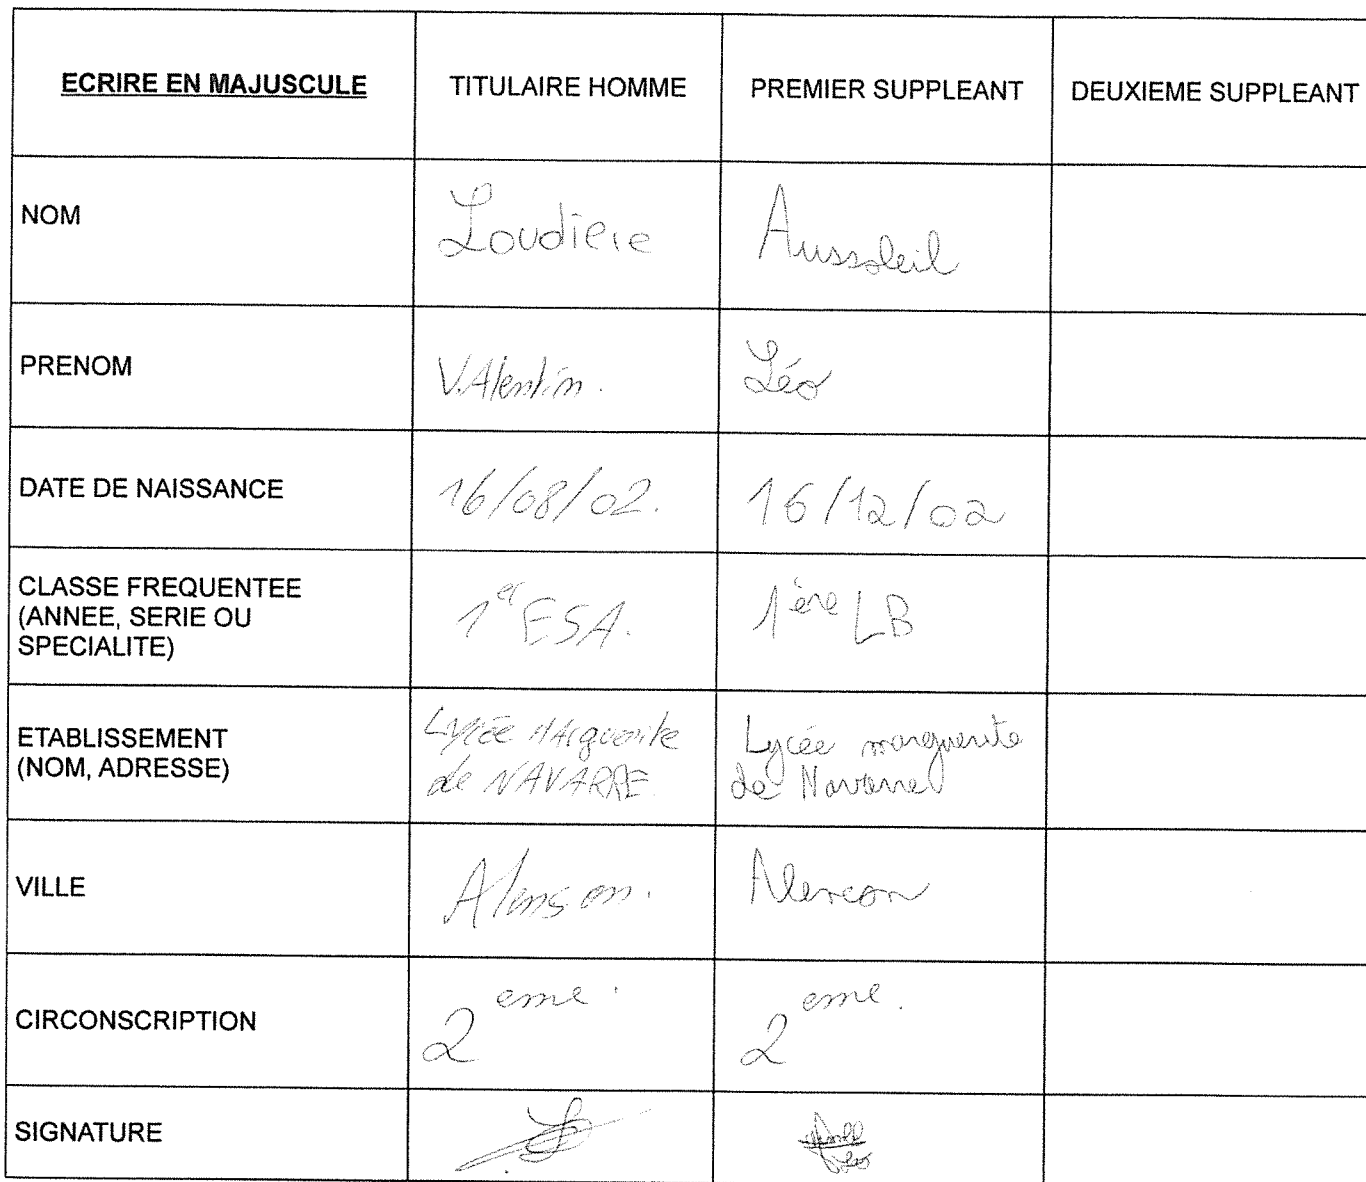 ECRIRE EN MAJUSCULE TITULAIRE HOMME PREMIER SUPPLEANT DEUXIEME SUPPLEANT
NOM Loudiere Aussoleil
PRENOM VAlentin. Léo
DATE DE NAISSANCE 16/08/02. 16/12/02
CLASSE FREQUENTEE
(ANNEE, SERIE OU
SPECIALITE)
1er ESA. 1ère LB
ETABLISSEMENT
(NOM, ADRESSE)
Lycée MArguerite
de NAVARRE.
Lycée marguerite
de Navarre
VILLE Alenson. Alencon
CIRCONSCRIPTION 2eme. 2eme.
SIGNATURE